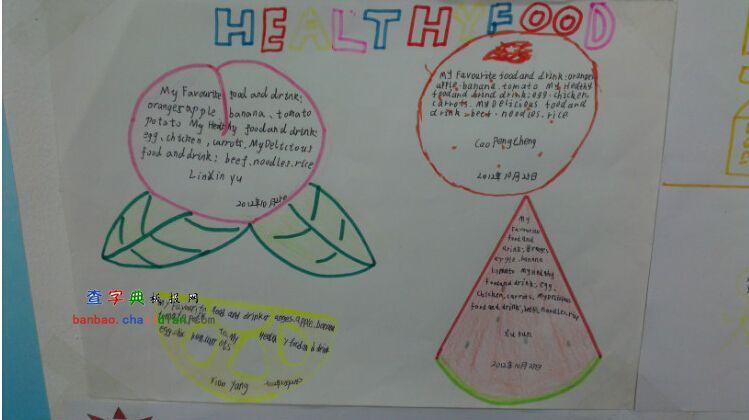 HEALTHY FOOD
My Favourite food and drink:
oranges apple banana、tomato
potato My Healthy food and drink:
egg、chicken, carrots. My Delicious
food and drink: beef. noodles. rice
LinXin yu
2012年10月23日
My Favourite food and drink: oranges
apple. banana. tomato My Healthy
food and drink: egg. chicken
carrots. My Delicious food and
drink: beef. noodles. rice
Cao PengCheng
2012年10月23日
My
Favourite
food and
drink: oranges
apple. banana
tomato My Healthy
food and drink: egg.
chicken, carrots, My Delicious
food and drink, beef, noodles, rice
Xu sun
2012年10月23日
查字典板报网
banbao.chazidian.com
My Favourite food and drink: oranges. apple. banana
tomato
Health y food and drink
egg
Xiao yang